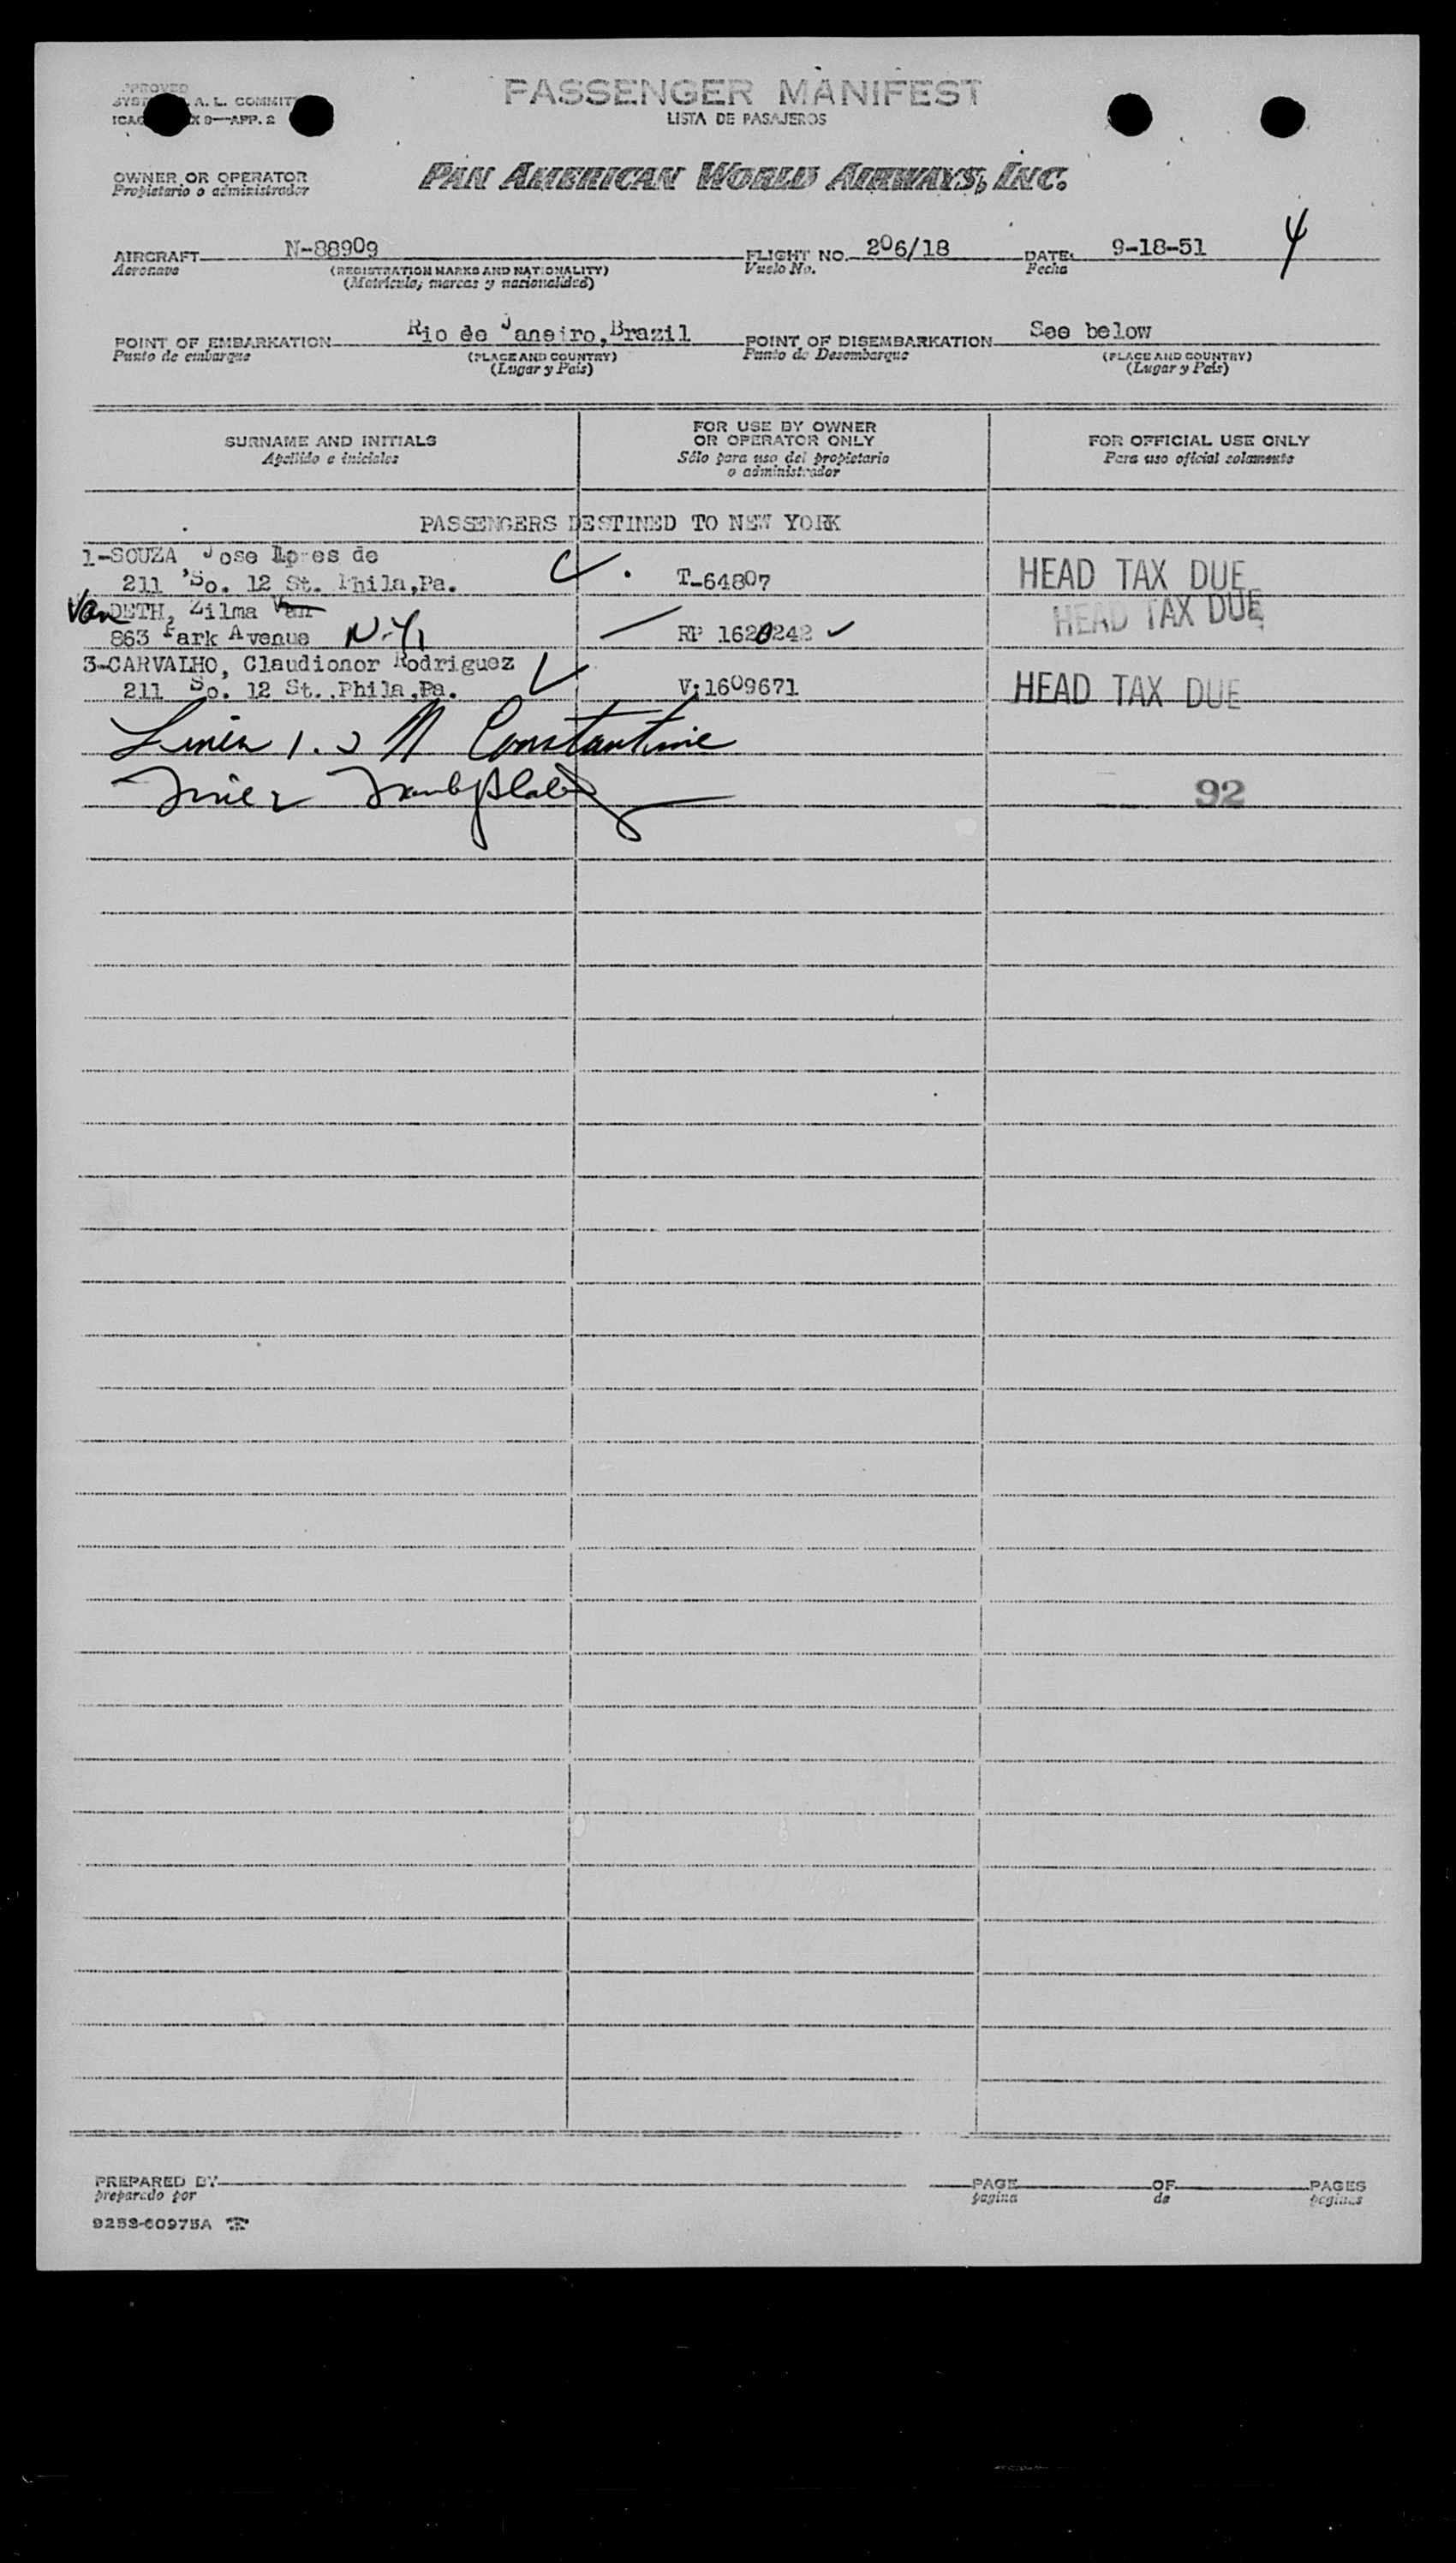 PASSENGER MANIFEST
LISTA DE PASAJEROS
A. L.
9—APP. 2
OWNER OR OPERATOR
Propietario o administrador
PAN AMERICAN WORLD AIRWAYS, INC.
4
AIRCRAFT N-88909 FLIGHT NO. 206/18 DATE 9-18-51
Aeronave (REGISTRATION MARKS AND NATIONALITY) Vuelo No. Fecha
(Matrícula, marcas y nacionalidad)
POINT OF EMBARKATION Rio de Janeiro, Brazil POINT OF DISEMBARKATION See below
Punto de embarque (PLACE AND COUNTRY) Punto de Desembarque (PLACE AND COUNTRY)
(Lugar y País) (Lugar y País)
SURNAME AND INITIALS FOR USE BY OWNER OR OPERATOR ONLY FOR OFFICIAL USE ONLY
Apellido e iniciales Sólo para uso del propietario o administrador Para uso oficial solamente
PASSENGERS DESTINED TO NEW YORK
1-SOUZA, Jose de
211 So. 12 St. Phila,Pa. T-64807 HEAD TAX DUE
Van DETH, Zilma Van HEAD TAX DUE
863 Park Avenue N.Y. RP 1620242
3-CARVALHO, Claudionor Rodriguez
211 So. 12 St. Phila,Pa. V:1609671 HEAD TAX DUE
Constantine
92
PREPARED BY PAGE OF PAGES
preparado por pagina de paginas
9253-60975A